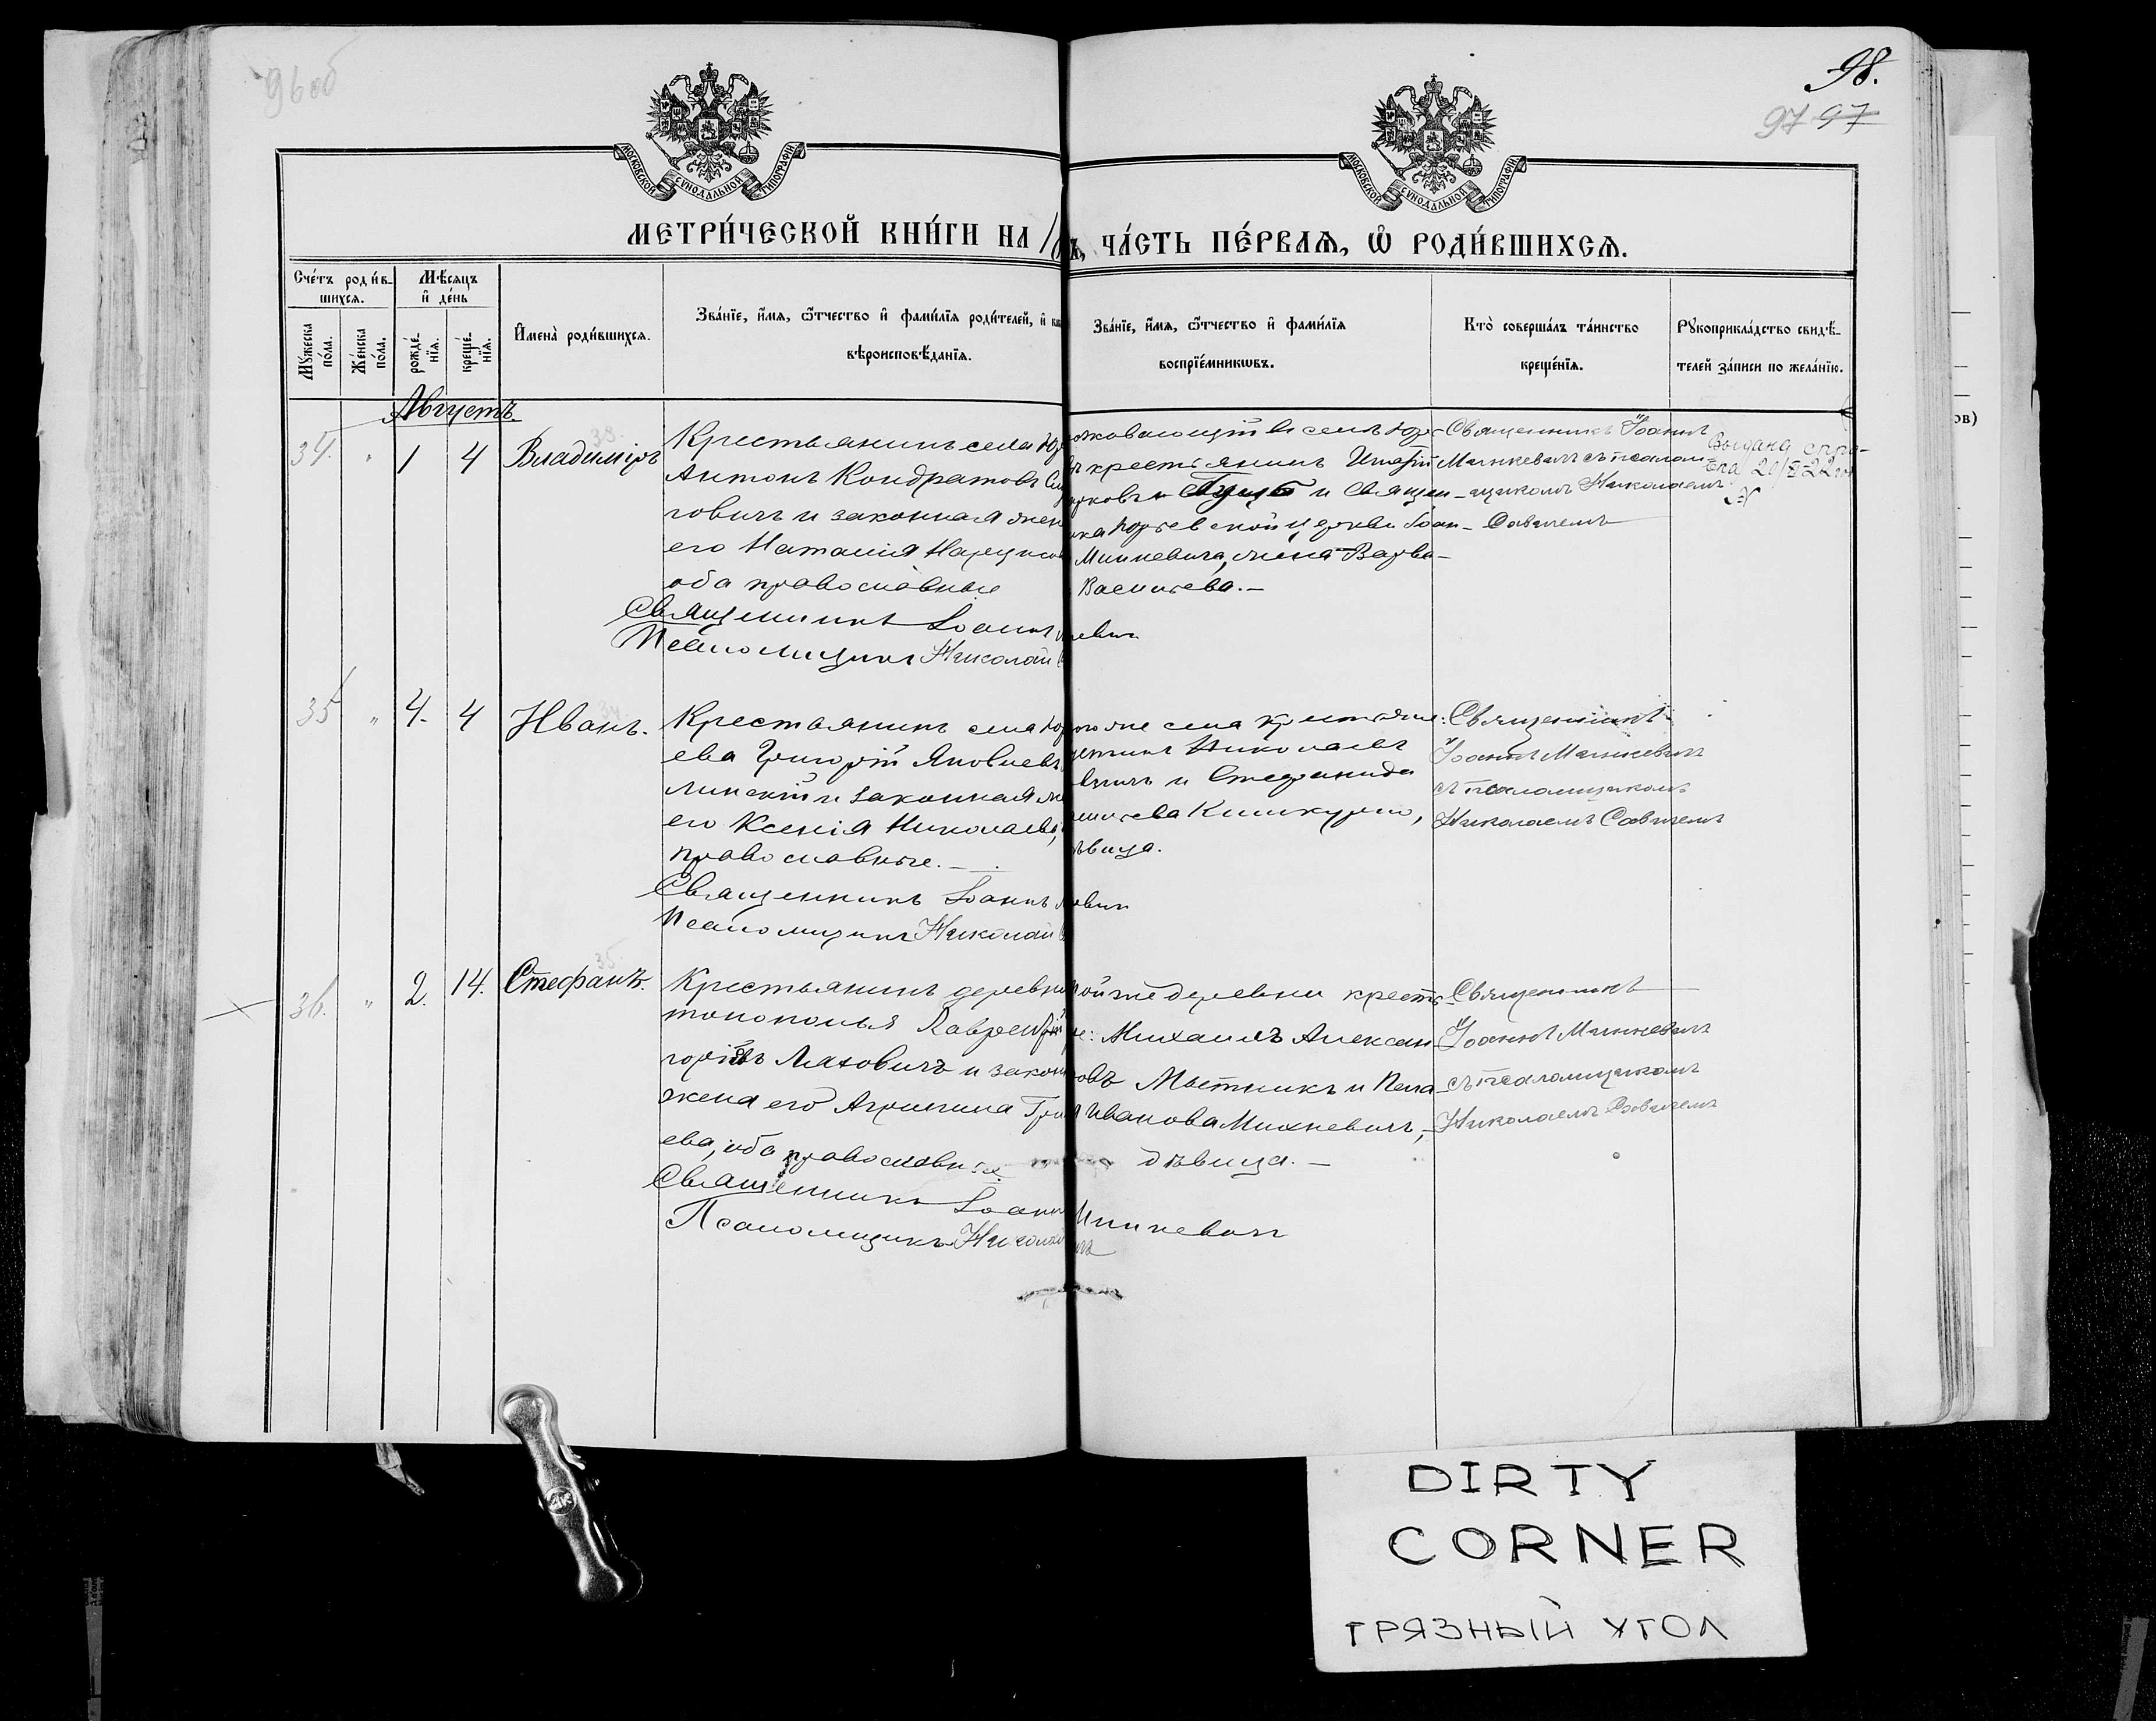 96об
98.
97 97
МОСКОВСКОЙ СѴНОДАЛЬНОЙ ТИПОГРАФІИ
МОСКОВСКОЙ СѴНОДАЛЬНОЙ ТИПОГРАФІИ
МЕТРИ́ЧЕСКОЙ КНИ́ГИ НА
ЧА́СТЬ ПЕ́РВАѦ, Ѿ РОДИ́ВШИХСѦ.
Сче́тъ роди́в-
шихсѧ.
Мѣ́сѧцъ
и҆ де́нь
Мꙋ́жеска по́ла.
Же́нска по́ла.
рожде́-
нїѧ.
креще́-
нїѧ.
И҆мена̀ роди́вшихсѧ.
Зва́нїе, и҆́мѧ, ѻ҆́тчество и҆ фами́лїѧ роди́телей, и҆
вѣроисповѣ́данїѧ.
Зва́нїе, и҆́мѧ, ѻ҆́тчество и҆ фами́лїѧ
воспрїе́мникѡвъ.
Кто̀ соверша́лъ та́инство
креще́нїѧ.
Рꙋкоприкла́дство свидѣ́-
телей за́писи по жела́нїю.
Августъ
34. " 1 4 Владиміръ
33.
Крестьянинъ села
Антонъ Кондратовъ
говичъ и законная жен
его Наталія
оба православные
Священникъ Іоаннъ
Псаломщикъ Николай
крестьянинъ
и Священ-
церкви Іоан-
Минкевича, жена Варва-
Васильева.-
евичъ
Священникъ Іоаннъ
Минкевичъ съ псалом-
щикомъ Николаемъ
Савичемъ
Выдана спра-
20/ 22
35 " 4. 4 Иванъ.
34
Крестьянинъ села Юр
ева Григорій Яковлевъ
линскій и законная
его Ксенія Николаева,
православные.-
Священникъ Іоаннъ
Псаломщикъ Николай
ого же села крестьяне:
Николаевъ
и Стефанида
ѣвица.
евич
Священникъ
Іоаннъ Минкевичъ
съ псаломщикомъ
Николаемъ Савичемъ
36. " 2. 14. Стефанъ.
35.
Крестьянинъ деревни
Лаврентій
горіевъ Ляховичъ и закон
жена его Агрипина
ева, оба православные
Священникъ Іоанн
Псаломщикъ Николай
той же деревни кресть-
не: Михаилъ Алексан-
овъ Мытникъ и Пела-
я Иванова Михневичъ,
дѣвица.-
Минкевичъ
ичъ
Священникъ
Іоаннъ Минкевичъ
съ псаломщикомъ
Николаемъ Савичемъ
ов)
DIRTY
CORNER
ГРЯЗНЫЙ УГОЛ